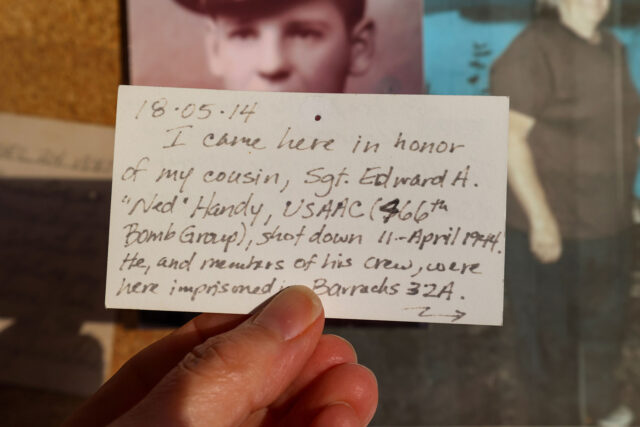 18·05·14
I came here in honor
of my cousin, Sgt. Edward A.
"Ned" Handy, USAAC (466th
Bomb Group), shot down 11-April 1944.
He, and members of his crew, were
here imprisoned Barracks 32A.